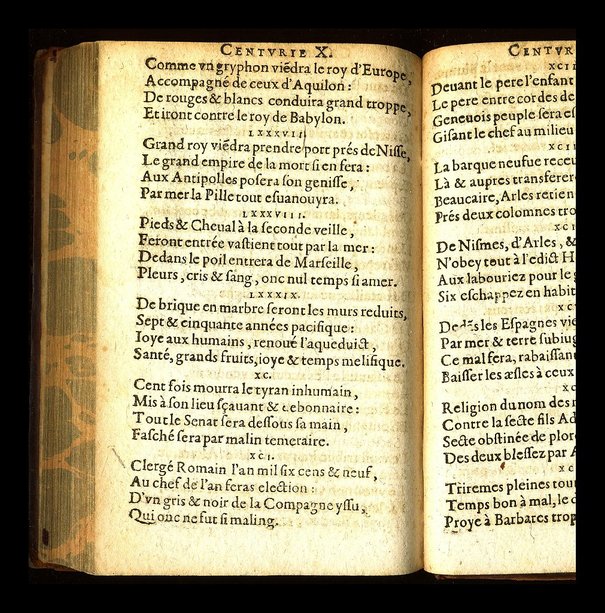 CENTVRIE X.
Comme vn gryphon viēdra le roy d'Europe,
Accompagné de ceux d'Aquilon:
De rouges & blancs conduira grand troppe,
Et iront contre le roy de Babylon.
LXXXVII.
Grand roy viēdra prendre port prés de Nisse,
Le grand empire de la mort si en fera:
Aux Antipolles posera son genisse,
Par mer la Pille tout esuanouyra.
LXXXVIII.
Pieds & Cheual à la seconde veille,
Feront entrée vastient tout par la mer:
Dedans le poil entrera de Marseille,
Pleurs, cris & sang, onc nul temps si amer.
LXXXIX.
De brique en marbre seront les murs reduits,
Sept & cinquante années pacifique:
Ioye aux humains, renoué l'aqueduict,
Santé, grands fruits, ioye & temps melifique.
XC.
Cent fois mourra le tyran inhumain,
Mis à son lieu sçauant & debonnaire:
Tout le Senat sera dessous sa main,
Fasché sera par malin temeraire.
XCI.
Clergé Romain l'an mil six cens & neuf,
Au chef de l'an feras election:
D'vn gris & noir de la Compagne yssu,
Qui onc ne fut si maling.
CENTVR
XCII
Deuant le pere l'enfant
Le pere entre cordes de
Geneuois peuple sera es
Gisant le chef au milieu
XCII
La barque neufue receu
Là & aupres transferer
Beaucaire, Arles retien
Prés deux colomnes tro
XCI
De Nismes, d'Arles, &
N'obey tout à l'edict H
Aux labouriez pour le g
Six eschappez en habit
XC
Dedās les Espagnes vie
Par mer & terre subiug
Ce mal fera, rabaissant
Baisser les æsles à ceux
XC
Religion du nom des r
Contre la secte fils Ad
Secte obstinée de plor
Des deux blessez par A
XC
Triremes pleines tout
Temps bon à mal, le d
Proye à Barbares trop